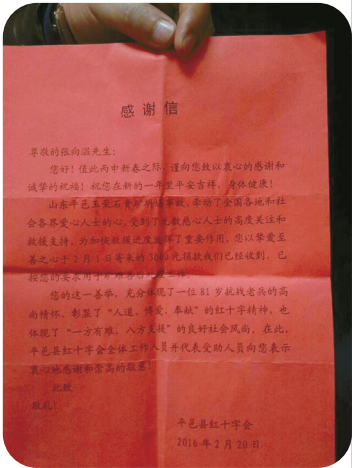 感谢信
尊敬的张向沼先生：
您好！值此丙申新春之际，谨向您致以衷心的感谢和
诚挚的祝福！祝您在新的一年里平安吉祥，身体健康！
山东平邑玉荣石膏矿坍塌事故，牵动了全国各地和社
会各界爱心人士的心，受到了无数慈心人士的高度关注和
救援支持，为加快救援进度发挥了重要作用，您以挚爱至
善之心于2月1日寄来的3000元捐款我们已经收到，已
按您的要求用于矿难
您的这一善举，充分体现了一位81岁抗战老兵的高
尚情怀，彰显了“人道、博爱、奉献”的红十字精神，也
体现了“一方有难，八方支援”的良好社会风尚。在此，
平邑县红十字会全体工作人员并代表受助人员向您表示
衷心地感谢和崇高的敬意！
此致
敬礼！
平邑县红十字会
2016年2月20日